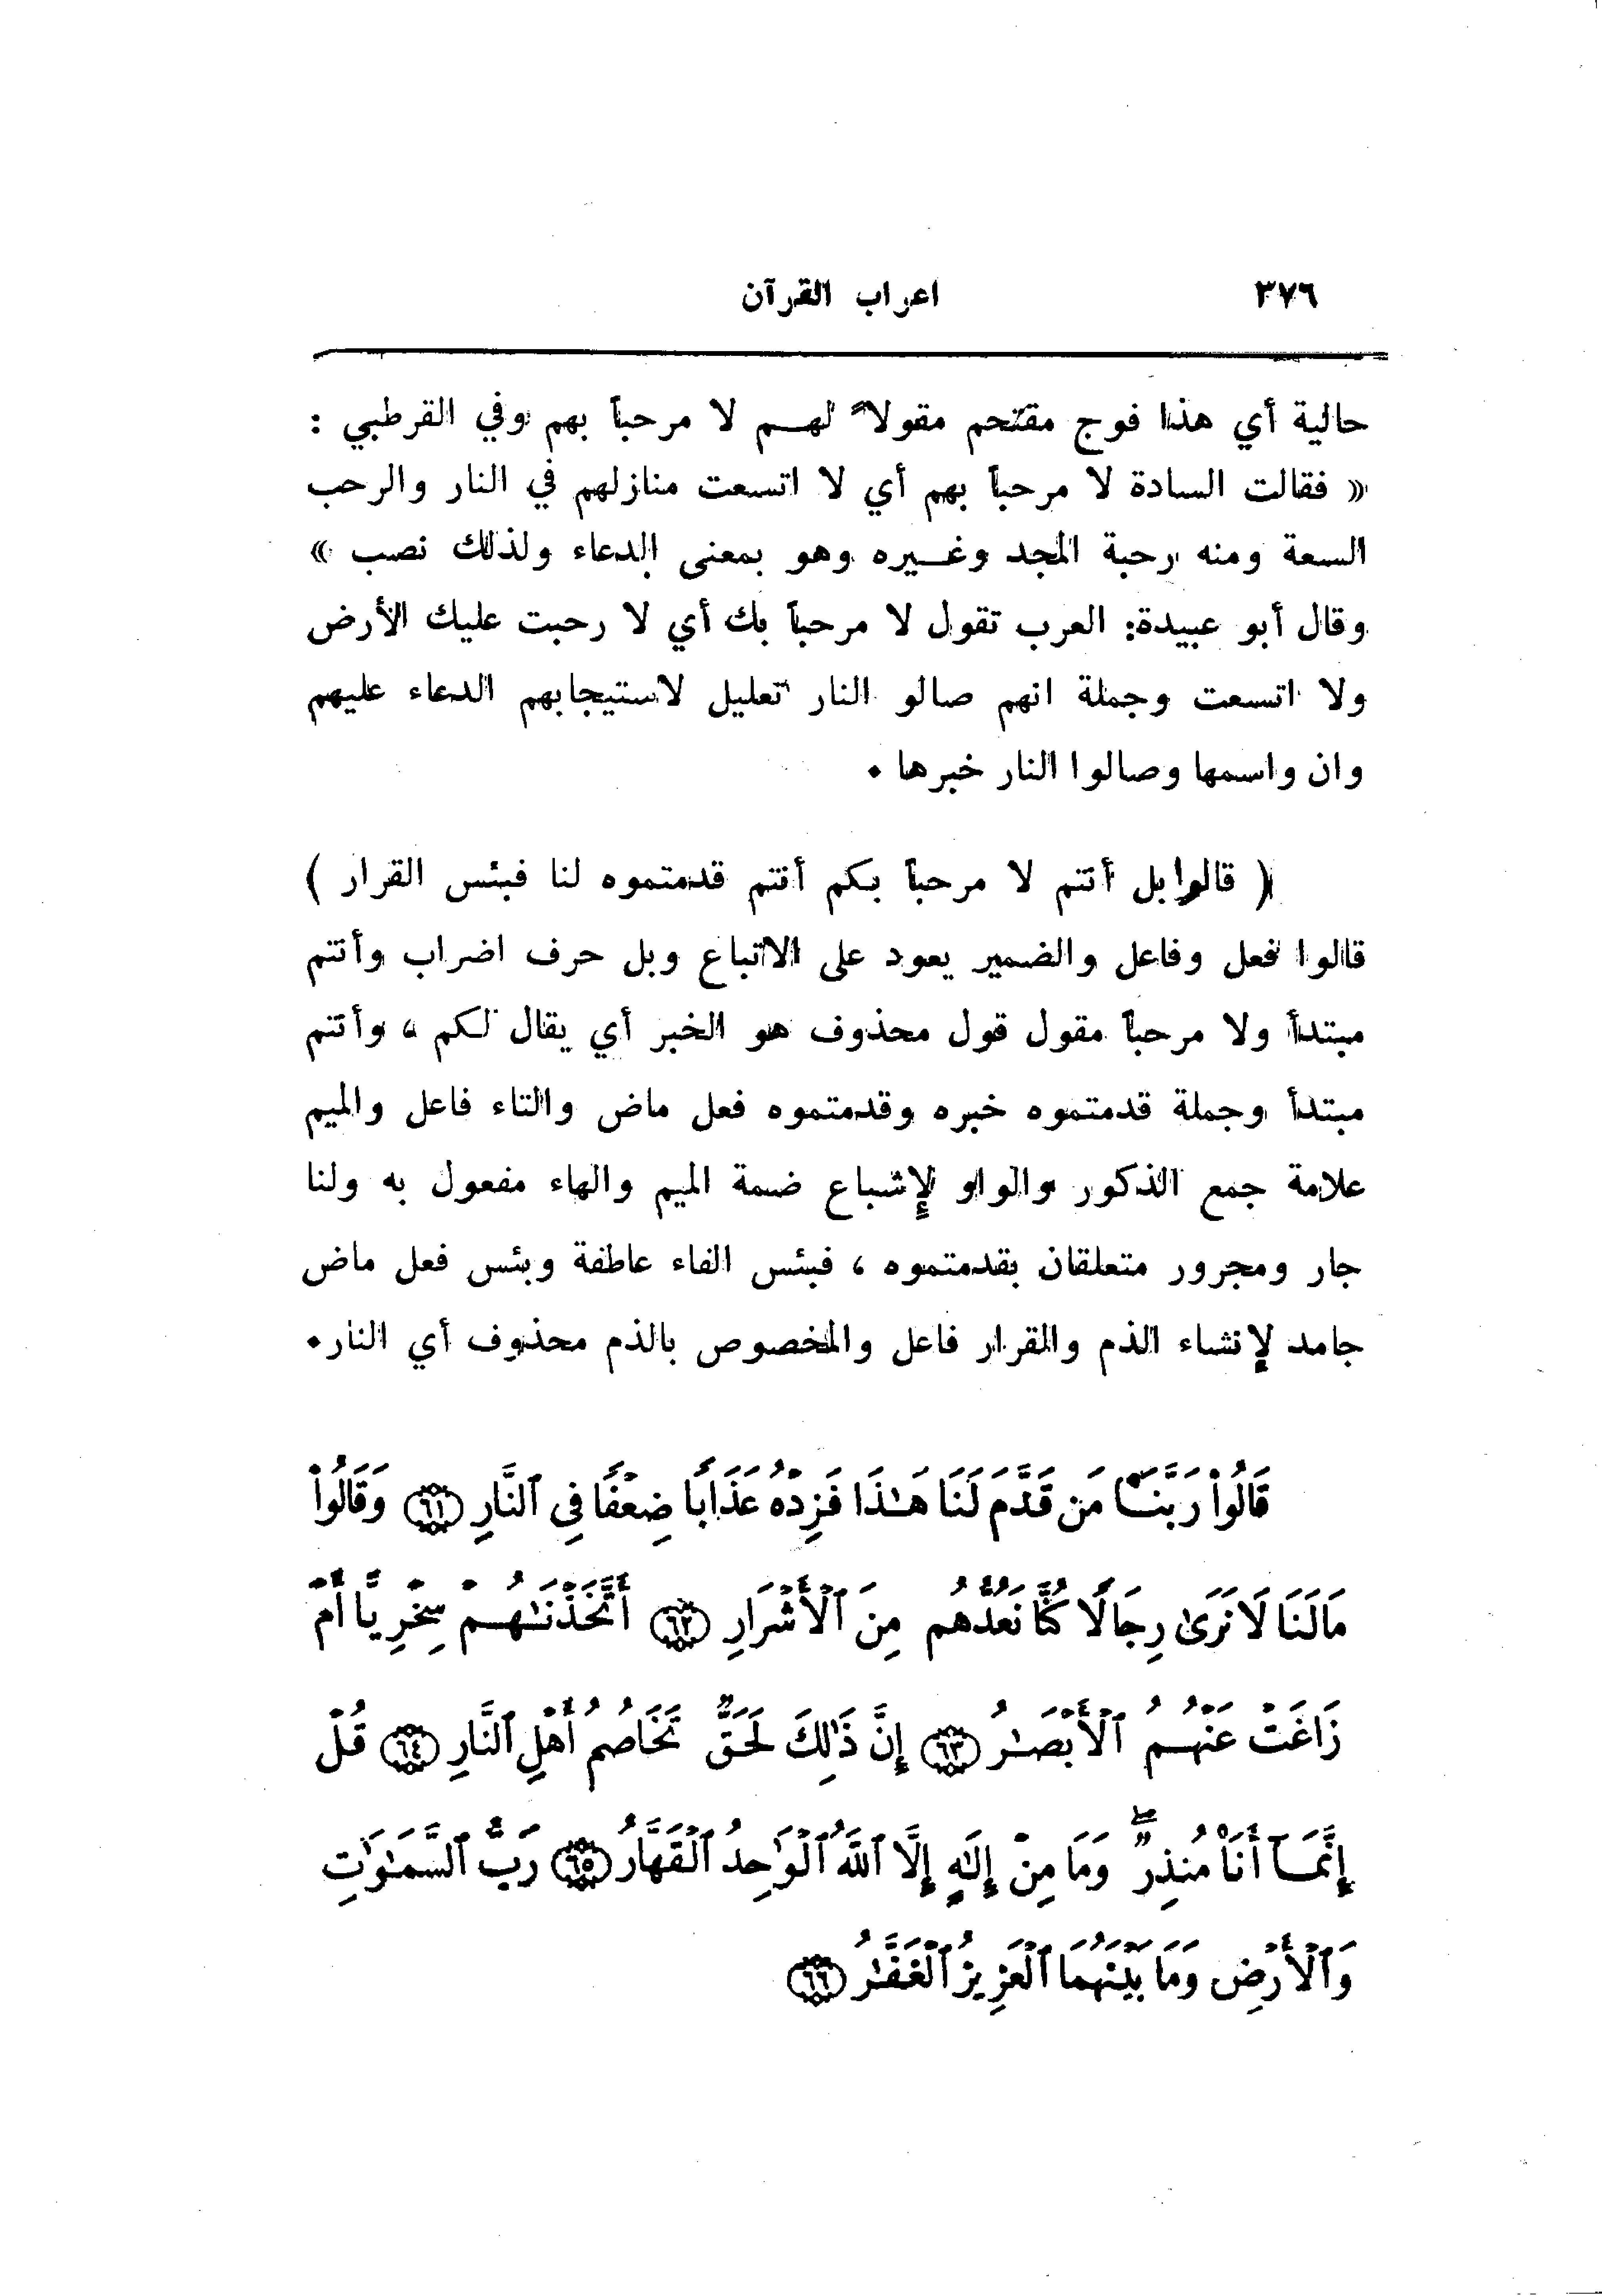 ٣٧٦ اعراب القرآن
حالية أي هذا فوج مقتحم مقولاً لهم لا مرحباً بهم وفي القرطبي :
« فقالت السادة لا مرحباً بهم أي لا اتسعت منازلهم في النار والرحب
السعة ومنه رحبة المجد وغيره وهو بمعنى الدعاء ولذلك نصب »
وقال أبو عبيدة: العرب تقول لا مرحباً بك أي لا رحبت عليك الأرض
ولا اتسعت وجملة انهم صالو النار تعليل لاستيجابهم الدعاء عليهم
وان واسمها وصالوا النار خبرها .
( قالوا بل أنتم لا مرحباً بكم أنتم قدمتموه لنا فبئس القرار )
قالوا فعل وفاعل والضمير يعود على الاتباع وبل حرف اضراب وأنتم
مبتدأ ولا مرحباً مقول قول محذوف هو الخبر أي يقال لكم ، وأنتم
مبتدأ وجملة قدمتموه خبره وقدمتموه فعل ماض والتاء فاعل والميم
علامة جمع الذكور والواو لإشباع ضمة الميم والهاء مفعول به ولنا
جار ومجرور متعلقان بقدمتموه ، فبئس الفاء عاطفة وبئس فعل ماض
جامد لإنشاء الذم والقرار فاعل والمخصوص بالذم محذوف أي النار.
قَالُواْ رَبَّنَا مَن قَدَّمَ لَنَا هَـٰذَا فَزِدْهُ عَذَابًا ضِعْفًا فِي ٱلنَّارِ ٦١ وَقَالُواْ
مَا لَنَا لَا نَرَىٰ رِجَالًا كُنَّا نَعُدُّهُم مِنَ ٱلْأَشْرَارِ ٦٢ أَتَّخَذْنَـٰهُمْ سِخْرِيًّا أَمْ
زَاغَتْ عَنْهُمُ ٱلْأَبْصَـٰرُ ٦٣ إِنَّ ذَٰلِكَ لَحَقٌّ تَخَاصُمُ أَهْلِ ٱلنَّارِ ٦٤ قُلْ
إِنَّمَآ أَنَا۠ مُنذِرٌ ۖ وَمَا مِنْ إِلَـٰهٍ إِلَّا ٱللَّهُ ٱلْوَٰحِدُ ٱلْقَهَّارُ ٦٥ رَبُّ ٱلسَّمَـٰوَٰتِ
وَٱلْأَرْضِ وَمَا بَيْنَهُمَا ٱلْعَزِيزُ ٱلْغَفَّـٰرُ ٦٦